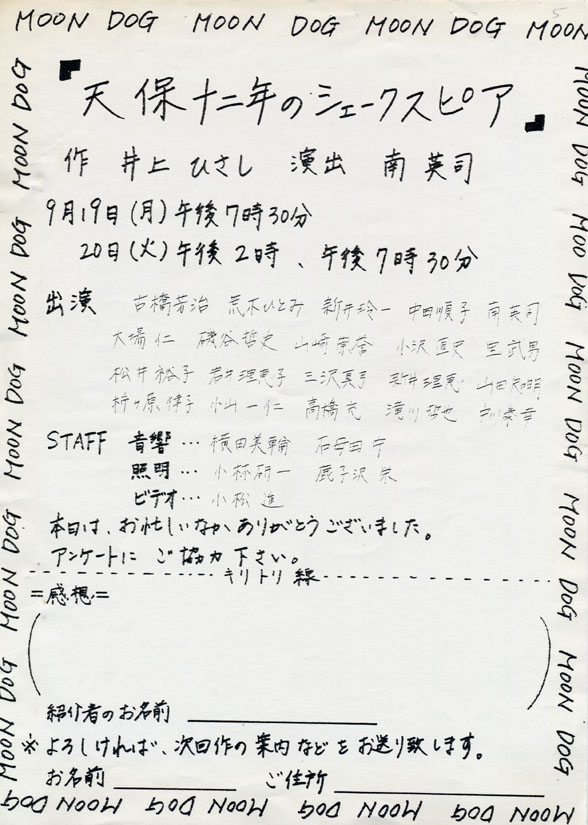 MOON DOG MOON DOG MOON DOG MOON DOG MOON
天保十二年のシェークスピア
作 井上 ひさし 演出 南 英司
9月19日(月)午後7時30分
20日(火)午後2時、午後7時30分
出演 古橋芳治 荒木ひとみ 新井玲一 中田順子 南英司
大場仁 磯谷哲史 山崎 小沢直史 室武男
松井裕子 岩井理恵子 三沢真弓 新井理恵 山田知明
小山一仁 高橋充 滝川哲也
STAFF 音響… 横田美輪 石母田守
照明… 小林研一 鹿子沢栄
ビデオ… 小松進
本日は、お忙しいなか、ありがとうございました。
アンケートに ご協力下さい。
キリトリ線
=感想=
紹介者のお名前
※よろしければ、次回作の案内などをお送り致します。
お名前 ご住所
MOON DOG MOON DOG MOON DOG MOON DOG MOON DOG
MOON DOG MOO DOG MOON DOG MOON DOG MOON DOG
MOON DOG MOON DOG MOON DOG MOON DOG